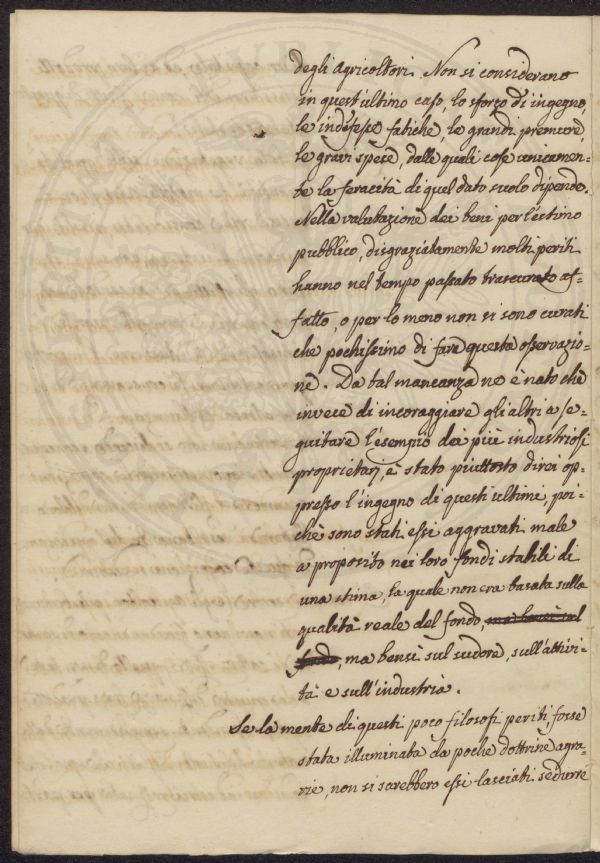 degli Agricoltori. Non si considerano
in quest'ultimo caso, lo sforzo di ingegno,
le indefesse fatiche, le grandi premure,
le gravi spese, dalle quali cose unicamen=
te la feracità di quel dato suolo dipende.
Nella valutazione dei beni per l'estimo
pubblico, disgraziatamente molti periti
hanno nel tempo passato trascurato af=
fatto, o per lo meno non si sono curati
che pochissimo di fare questa osservazio=
ne. Da tal mancanza ne è nato che
invece di incoraggiare gli altri a se=
guitare l'esempio dei più industriosi
proprietarj, è stato piuttosto direi op=
presso l'ingegno di questi ultimi, poi=
chè sono stati essi aggravati male
a proposito nei loro fondi stabili di
una stima, la quale non era basata sulla
qualità reale del fondo, ma bensì sul
fondo, ma bensì sul sudore, sull'attivi=
tà e sull'industria.
Se la mente di questi poco filosofi periti fosse
stata illuminata da poche dottrine agra=
rie, non si sarebbero essi lasciati sedurre